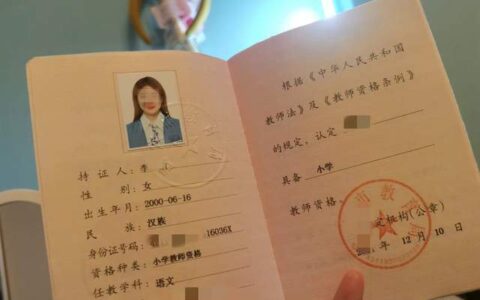 持 证 人: 李
性 别: 女
出生年月: 2000-06-16
民 族: 汉族
身份证号码: 16036X
资格种类: 小学教师资格
任教学科: 语文
根据《中华人民共和国
教师法》及《教师资格条例》
的规定, 认定
具备 小学
教师资格。
市教
定机构(公章)
12 月 10 日